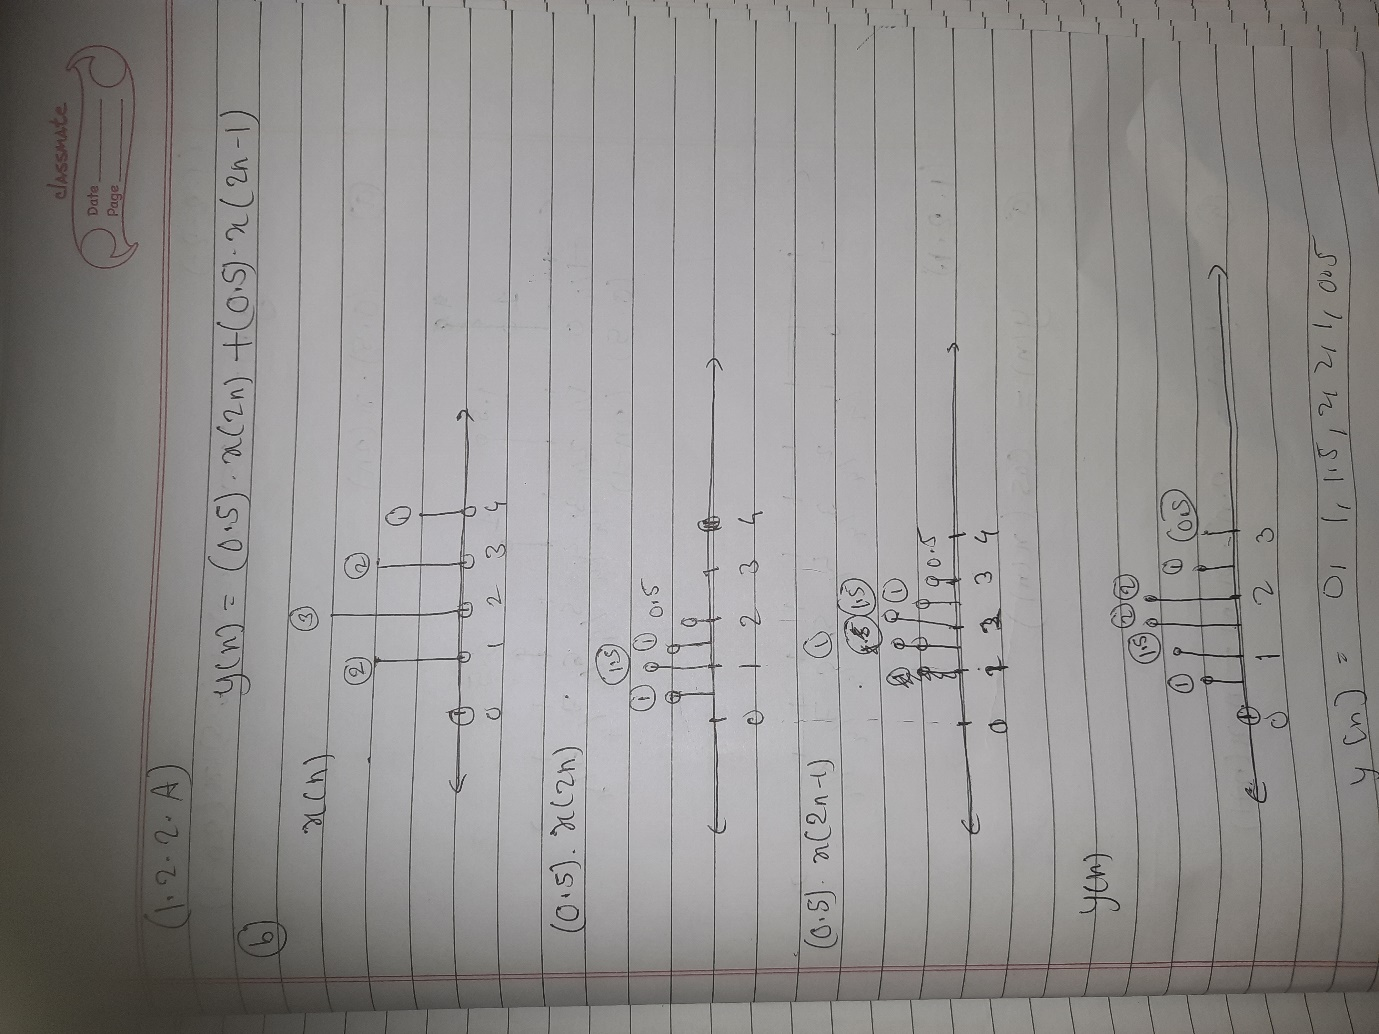 classmate
Date
Page
(1.2.2.A)
(b) y(n) = (0.5).x(2n) + (0.5).x(2n-1)
x(n)
2 3 2 1
0 1 2 3 4
(0.5).x(2n)
1 1.5 1 0.5
0 1 2 3 4
(0.5).x(2n-1)
1
1.5 1 0.5
0 3 4
y(n)
1 1.5 2 2 1 0.5
0 1 2 3
y(n) = 0, 1, 1.5, 2, 2, 1, 0.5